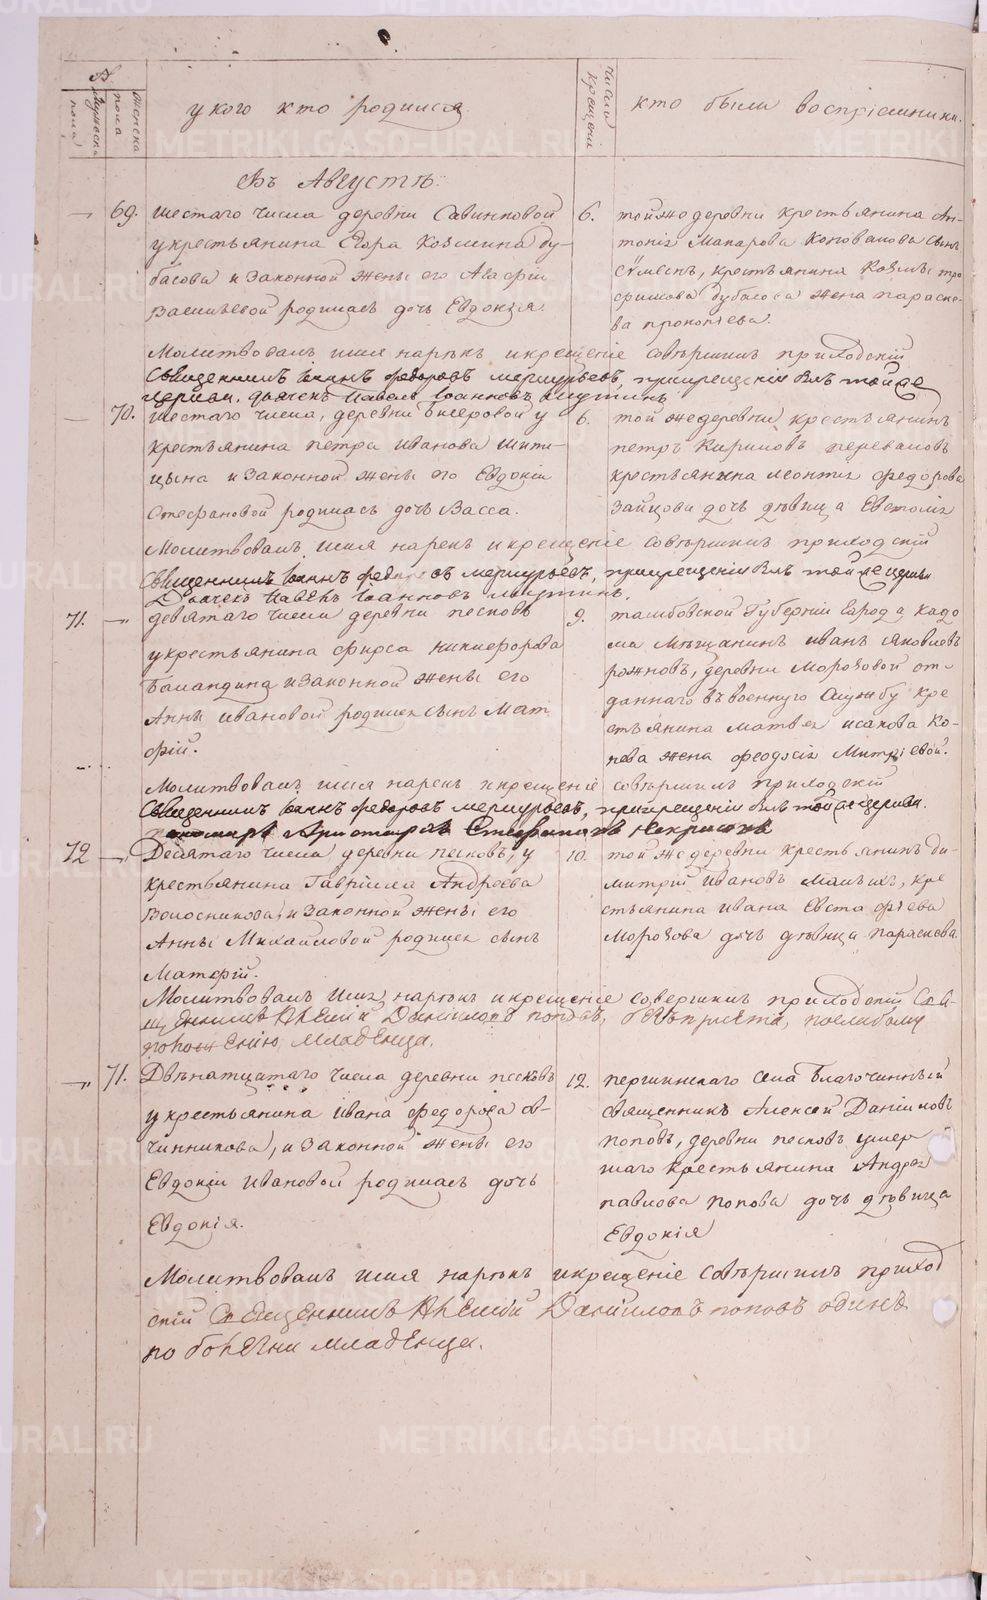 №
Мужеска пола
Женска пола
у кого кто родился
число крещенiи
кто были воспрiемники.
Въ Августѣ:
69. шестаго числа деревни Савинковой
у крестьянина Егора Козмина Ду-
басова и законной жены его Агафiи
Васильевой родилась дочь Евдокiя.
6. той же деревни крестьянина Ан-
тонiя Макарова Коновалова сынъ
Сѵмеонъ, крестьянина Козмы тро
фимова Дубасова жена параске-
ва прокопiева.
Молитвовалъ имя нарѣкъ и крещенiе совѣршилъ приходскiй
Священникъ Iоаннъ федоровъ меркурьевъ, при крещенiи былъ той же
церкви дьячекъ Павелъ Iоанновъ
70. шестаго числа, деревни у
крестьянина петра иванова Шипи-
цына и законной жены его Евдокiи
Стефановой родилась дочь Васса.
6. той же деревни крестьянинъ
петръ Кириловъ переваловъ
крестьянина Леонтiя федорова
Зайцова дочь дѣвица
Молитвовалъ, имя нарекъ и крещенiе совѣршилъ приходскiй
Священникъ Iоаннъ федоровъ меркурьевъ, при крещенiи былъ той же церкви
Дьячекъ Павелъ Iоанновъ
71. девятаго числа деревни песковъ
у крестьянина фирса никифорова
Баландина и законной жены его
Анны ивановой родился сынъ Мат
фiй.
9. тамбовской Губернiи города Кадо
ма мѣщанинъ иванъ яковлевъ
рожновъ, деревни Морозовой от-
даннаго въ военную службу кре
стьянина матвея исакова Ко-
нева жена феодосiя Митрiевой.
Молитвовалъ имя нарекъ и крещенiе совѣршилъ приходскiй
Священникъ Iоаннъ федоровъ меркурьевъ, при крещенiи былъ той же церкви.
пономарь Аристархъ Стефановъ некрасовъ
72 Десятаго числа деревни песковъ, у
крестьянина Гаврiила Андреева
Волосникова, и законной жены его
Анны Михайловой родился сынъ
Матфiй.
10. той же деревни крестьянинъ ди-
митрiй ивановъ Малыхъ, кре
стьянина ивана Евстафiева
Морозова дочь дѣвица параскева
Молитвовалъ имя нарѣкъ и крещенiе совершилъ приходскiй Свя-
щенникъ Алексiй Данiиловъ поповъ, безъ причета, по слабому
положенiю младенца.
71. Двѣнатцатаго числа деревни песковъ
у крестьянина ивана федорова ов-
чинникова, и законной жены его
Евдокiи ивановой родилась дочь
Евдокiя.
12. першинскаго села Благочинный
священникъ Алексей Данiиловъ
поповъ, деревни песковъ умер
шаго крестьянина Андрея
павлова попова дочь дѣвица
Евдокiя
Молитвовалъ имя нарѣкъ и крещенiе совѣршилъ приход
скiй Священникъ Алексiй Данiиловъ поповъ одинъ
по болезни младенца.
METRIKI.GASO-URAL.RU